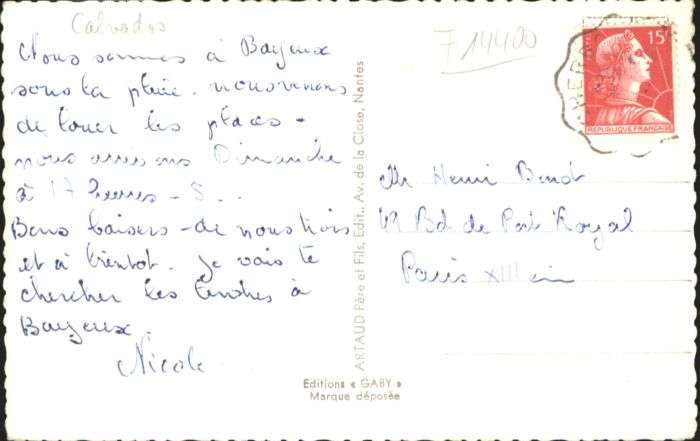 Calvados
Nous sommes à Bayeux
sous la pluie. nous venons
de louer les places -
nous arrivons Dimanche
à 17 heures -
Bons baisers - de nous trois
et à bientôt. Je vais te
chercher les timbres à
Bayeux.
Nicole
F 14400
15F
REPUBLIQUE FRANÇAISE
Mr Henri Benot
49 Bd de Port Royal
Paris XIII em
ARTAUD Père et Fils, Edit., Av. de la Close, Nantes
Editions « GABY »
Marque déposée